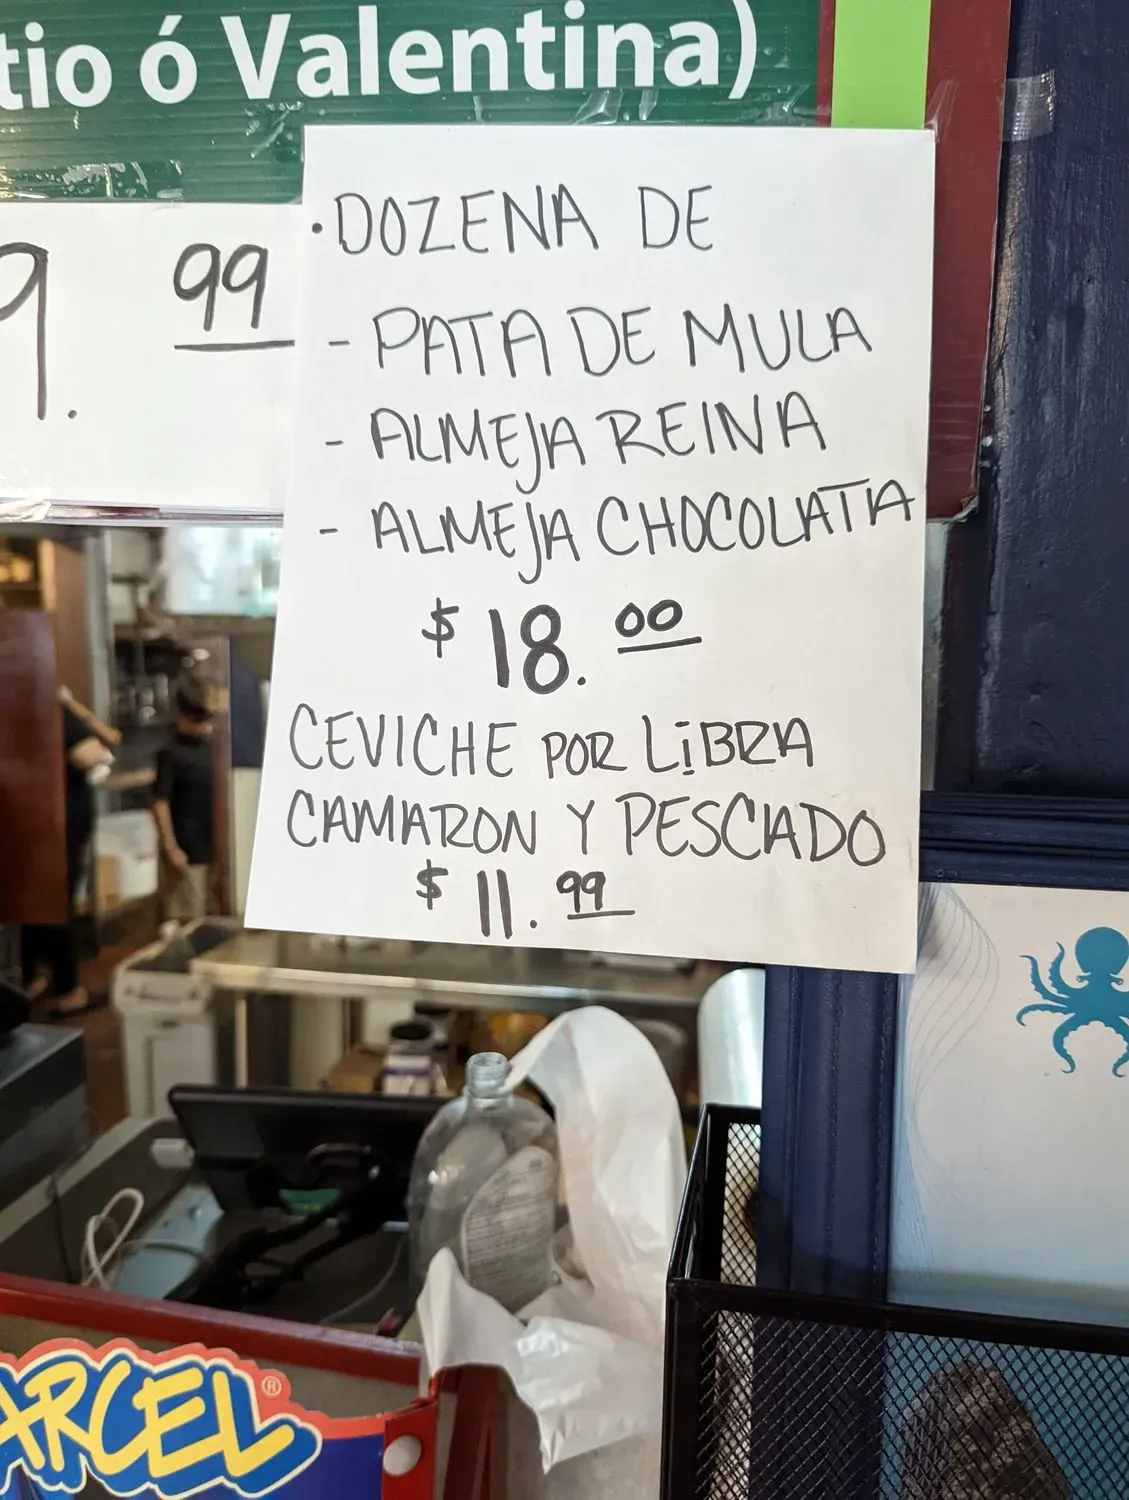 tio ó Valentina)
9.99
·DOZENA DE
- PATA DE MULA
- ALMEJA REINA
- ALMEJA CHOCOLATA
$18.00
CEVICHE POR LiBRA
CAMARON Y PESCADO
$11.99
ARCEL®